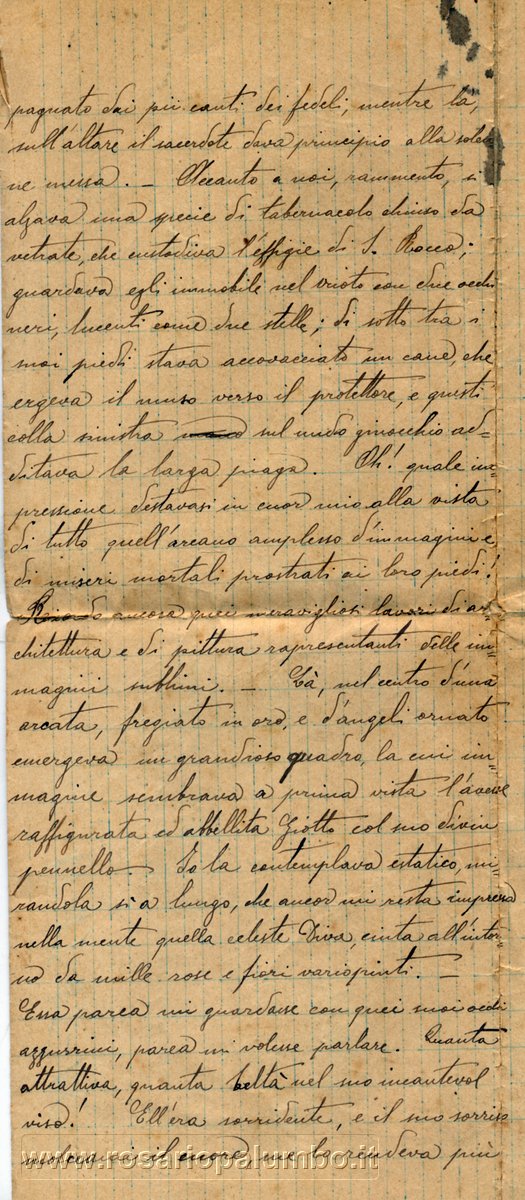 pagnato dai pii canti dei fedeli, mentre là,
sull'altare il sacerdote dava principio alla solen
ne messa. — Accanto a noi, rammento, si
alzava una specie di tabernacolo chiuso da
vetrate, che custodiva l'effigie di S. Rocco;
guardava egli immobile nel vuoto con due occhi
neri, lucenti come due stelle; di sotto tra i
suoi piedi stava accovacciato un cane, che
ergeva il muso verso il protettore, e questi
colla sinistra sul nudo ginocchio ad=
ditava la larga piaga. Oh! quale im=
pressione destavasi in cuor mio alla vista
di tutto quell'arcano amplesso d'immagini e
di miseri mortali prostrati ai loro piedi!
ancora quei meravigliosi lavori di ar
chitettura e di pittura rapresentanti delle im=
magini sublimi. — Là, nel centro d'una
arcata, fregiato in oro, e d'angeli ornato
emergeva un grandioso quadro, la cui im=
magine sembrava a prima vista l'avesse
raffigurata ed abbellita Giotto col suo divin
pennello. Io la contemplava estatico, mi=
randola sì a lungo, che ancor mi resta impressa
nella mente quella celeste Diva, cinta all'intor=
no da mille rose e fiori variopinti. —
Essa parea mi guardasse con quei suoi occhi
azzurrini, parea mi volesse parlare. Quanta
attrattiva, quanta beltà nel suo incantevol
viso! Ell'era sorridente, e il suo sorriso
il cuore, me la rendeva più
www.rosariopalumbo.it